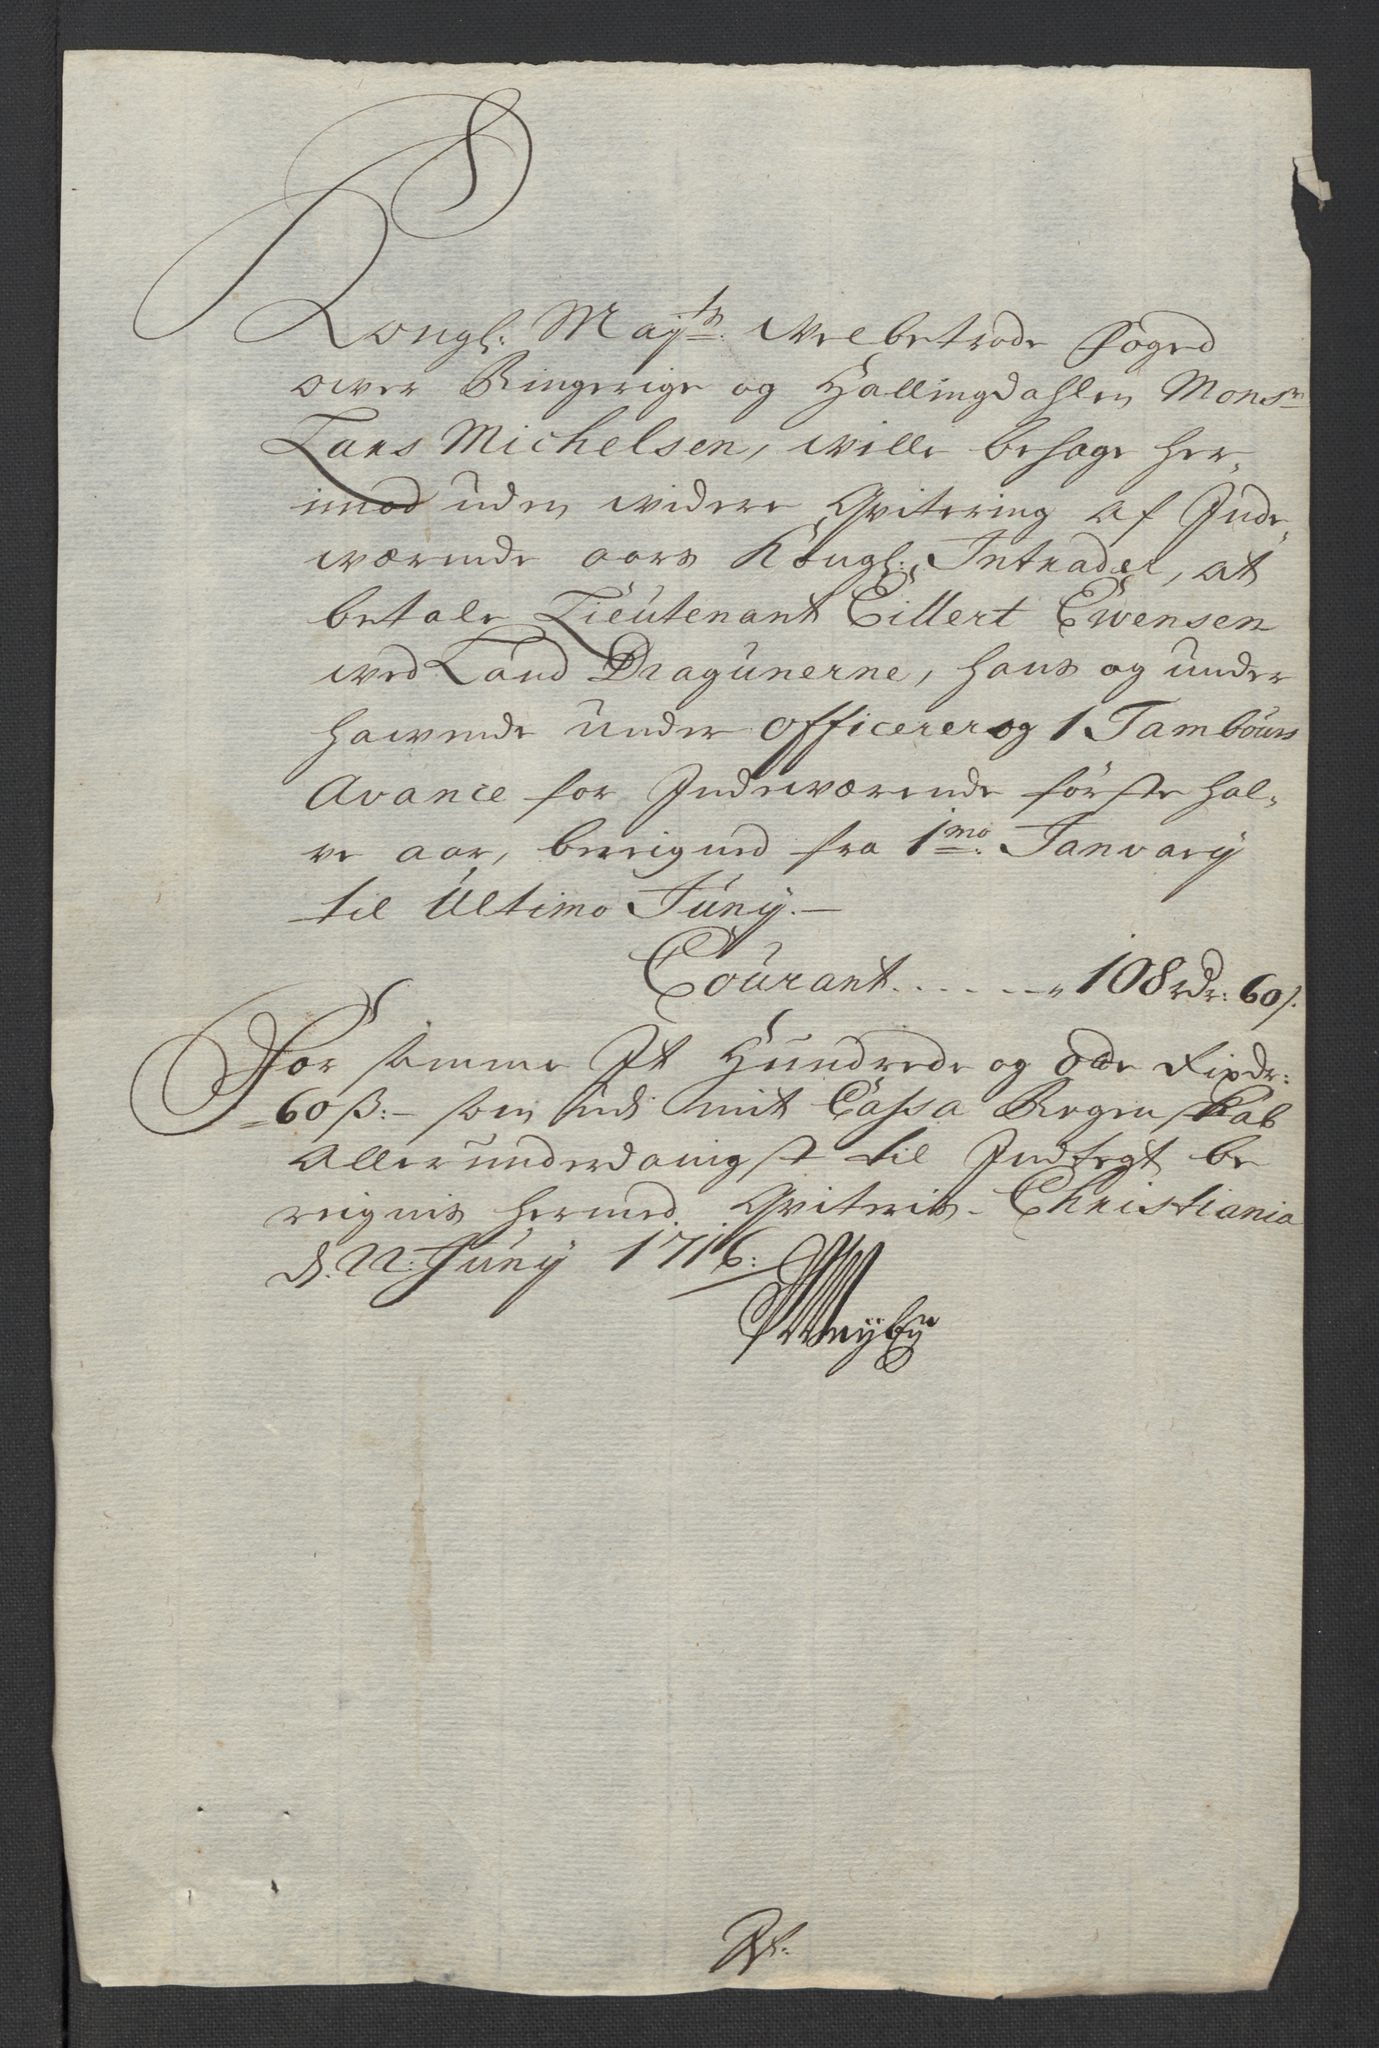 Kongl: Mayts welbetrode Foged
over Ringerige og Hallingdahlen Monsr
Lars Michelsen, wille behage her,
imod uden widere Qvitering af Inde,
værende aars Kongl: Intrader, at
betale Lieutenant Eillert Ewensen
wed Land Dragunerne, hans og under
hawende under officerer og 1 Tambours
Avance for Indewærende første hal,
ve aar, bereigned fra 1mo: Ianvary
til Ultimo Iuny.—
Courant . . . . . . 108 rdr: 60 s.
For samme Et Hundrede og otte Rixdr:
60 ß:— som udi mit Cassa Regenskab
Allerunderdanigst til Indtegt be
reignis hermed Qviteris. Christiania
d. 22: Iuny 1716: